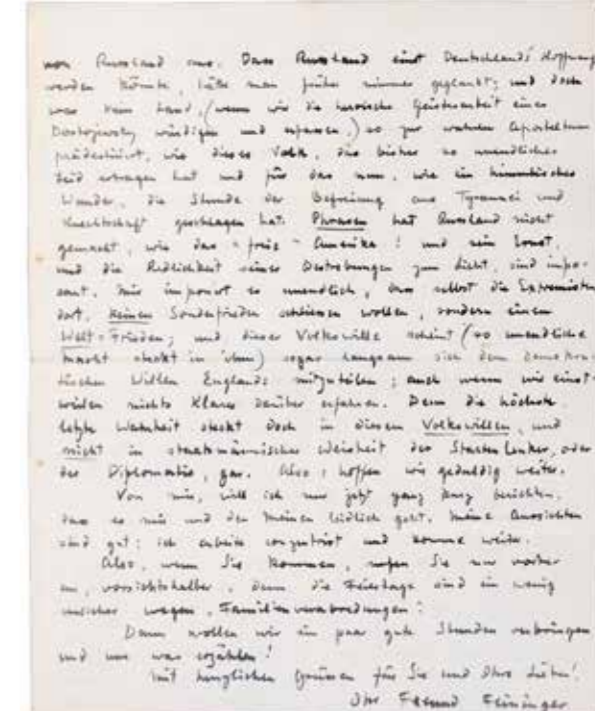 von Russland aus. Dass Russland einst Deutschlands Hoffnung
werden könnte, hätte man früher nimmer geglaubt; und doch
war kein Land, (wenn wir die heroische Geistesarbeit eines
Dostojewsky würdigen und erfassen,) so zur wahren Aposteltum
prädestiniert, wie dieses Volk, das bisher so unendliches
Leid ertragen hat und für das nun, wie ein himmlisches
Wunder, die Stunde der Befreiung aus Tyrannei und
Knechtschaft geschlagen hat. Phrasen hat Russland nicht
gemacht, wie das "freie" Amerika! und sein Ernst,
und die Redlichkeit seiner Bestrebungen zum Licht, sind impo-
sant. Mir imponiert es unendlich, dass selbst die Extremisten
dort, keinen Sonderfrieden schliessen wollen, sondern einen
Welt-Frieden; und dieser Volkswille scheint (so unendliche
Macht steckt in ihm) sogar langsam sich dem demokra-
tischen Willen Englands mitzuteilen; auch wenn wir einst-
weilen nichts Klares darüber erfahren. Denn die höchste
letzte Wahrheit steckt doch in diesem Volkswillen, und
nicht in staatsmännischer Weisheit der Staaten Lenker, oder
der Diplomatie, gar. Also: hoffen wir geduldig weiter.
Von mir, will ich nur jetzt ganz kurz berichten,
dass es mir und den Meinen leidlich geht. Meine Aussichten
sind gut; ich arbeite conzentriert und komme weiter.
Also, wenn Sie kommen, rufen Sie nur vorher
an, vorsichtshalber, denn die Feiertage sind ein wenig
unsicher wegen, Familienverabredungen!
Dann wollen wir ein paar gute Stunden verbringen
und uns was erzählen!
Mit herzlichen Grüssen für Sie und Ihre Lieben!
Ihr Freund Feininger